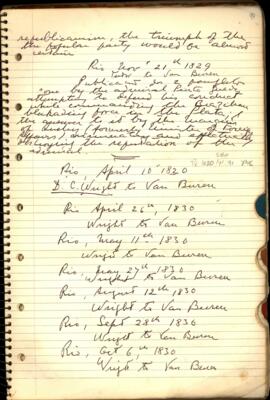 republicanism, the triumph of the
the popular party would be almost
certain
Rio Nov. 21st 1829
to Van Buren
Publication in a pamphlet
one by the admiral
attempting to defend his conduct
while commanding the Brazilian
blockading force in the Plata;
the answer to it by the
formerly minister of foreign
affairs, and effectually
destroying the reputation of the
admiral.
Rio, April 10th 1830
D. C. Wright to Van Buren
Rio April 26th, 1830
Wright to Van Buren
Rio, May 11th 1830
Wright to Van Buren
Rio, May 27th 1830
Wright to Van Buren
Rio, August 12th 1830
Wright to Van Buren
Rio, Sept 28th 1830
Wright to Van Buren
Rio, Oct 6th, 1830
Wright to Van Buren